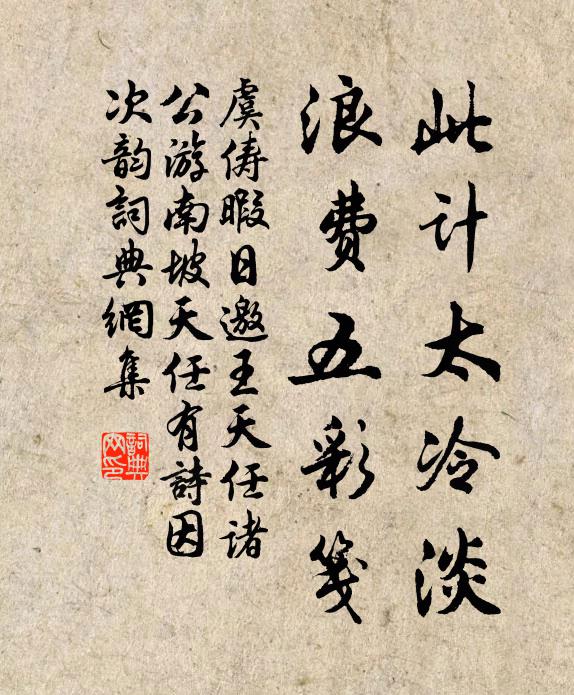 此计太冷淡
浪费五彩笺
虞俦暇日邀王天任诸
公游南坡天任有诗因
次韵词典网集
词典网印